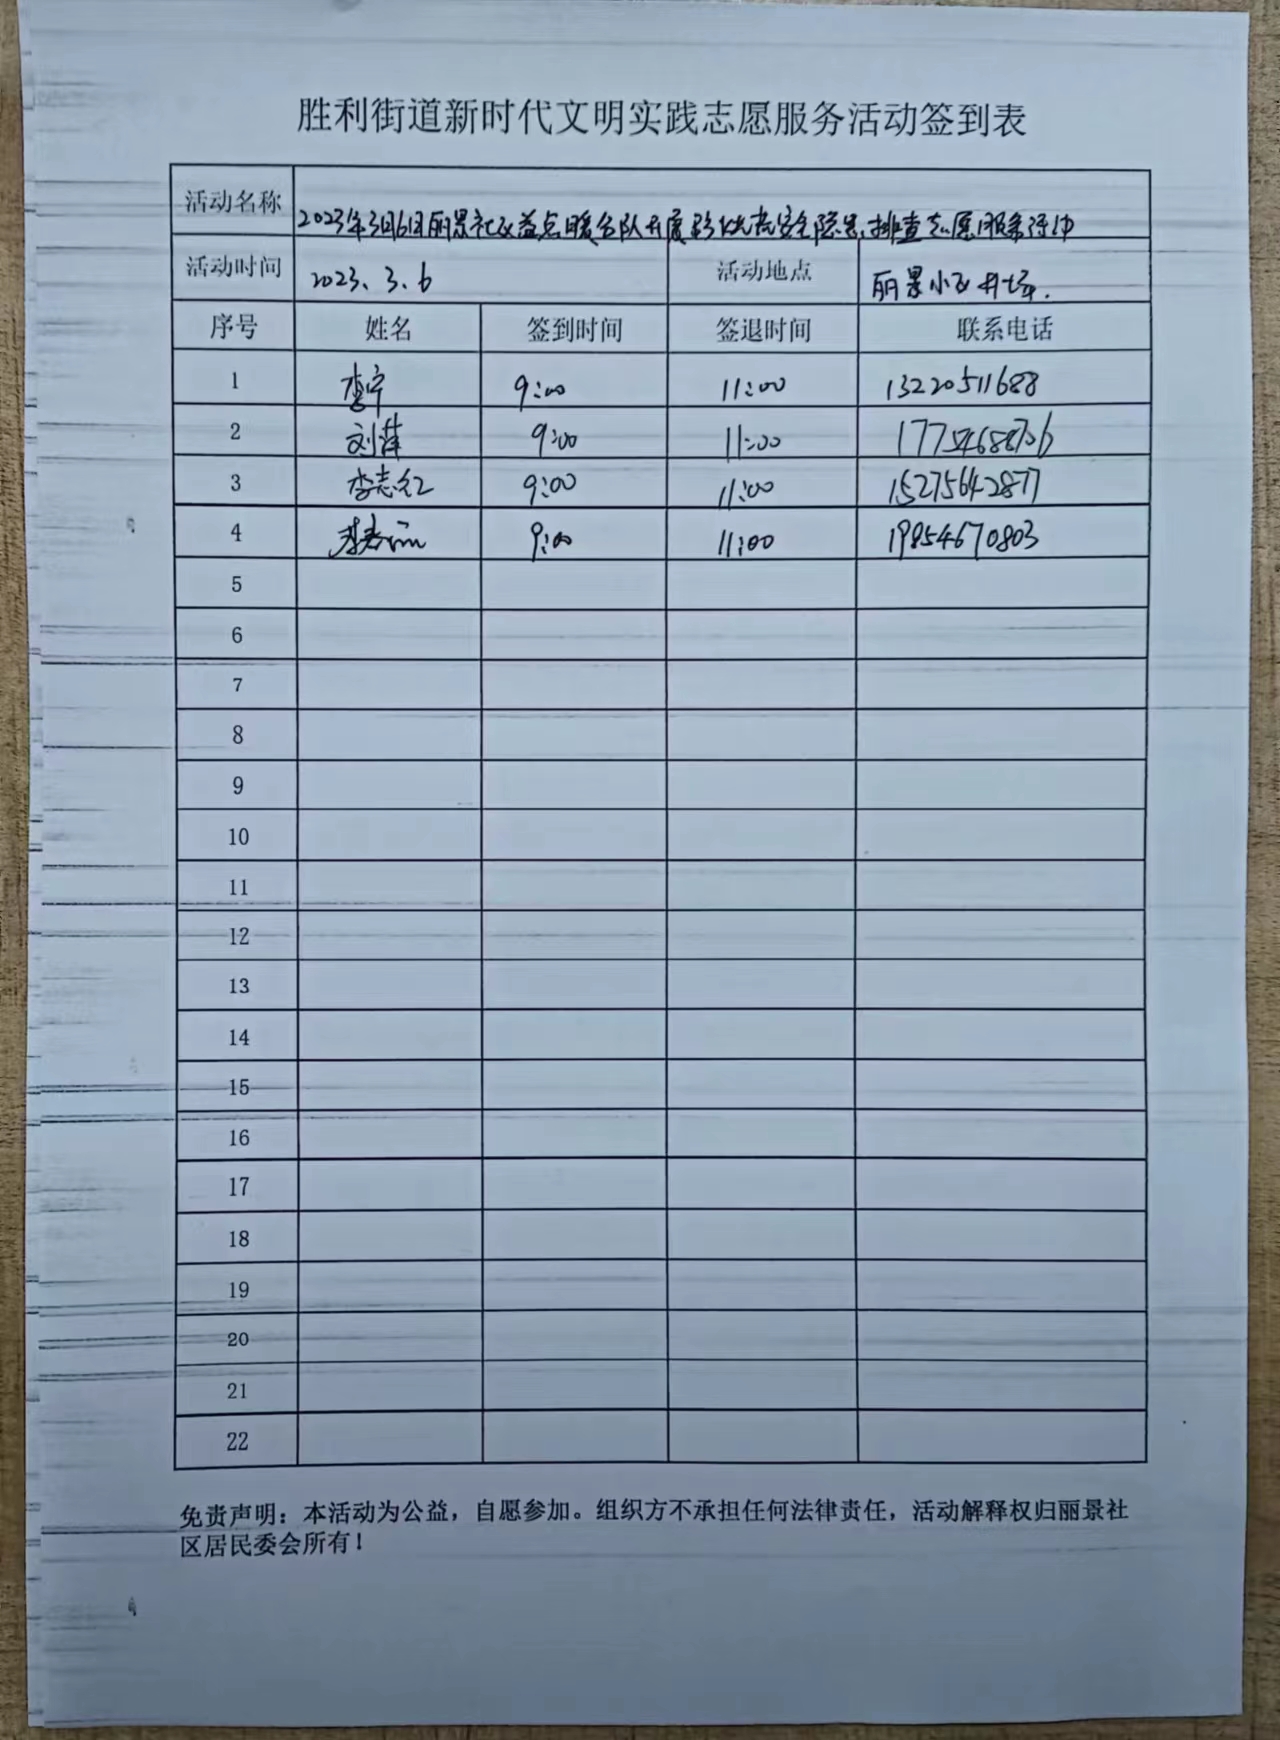 胜利街道新时代文明实践志愿服务活动签到表
活动名称 2023年3月6日丽景社区益点暖全队开展 安全隐患排查志愿服务活动
活动时间 2023.3.6 活动地点 丽景小区广场.
序号 姓名 签到时间 签退时间 联系电话
1 李宁 9:00 11:00 13220511688
2 刘萍 9:00 11:00 17754688706
3 李志红 9:00 11:00 15275642877
4 9:00 11:00 19854670803
5
6
7
8
9
10
11
12
13
14
15
16
17
18
19
20
21
22
免责声明：本活动为公益，自愿参加。组织方不承担任何法律责任，活动解释权归丽景社
区居民委会所有！